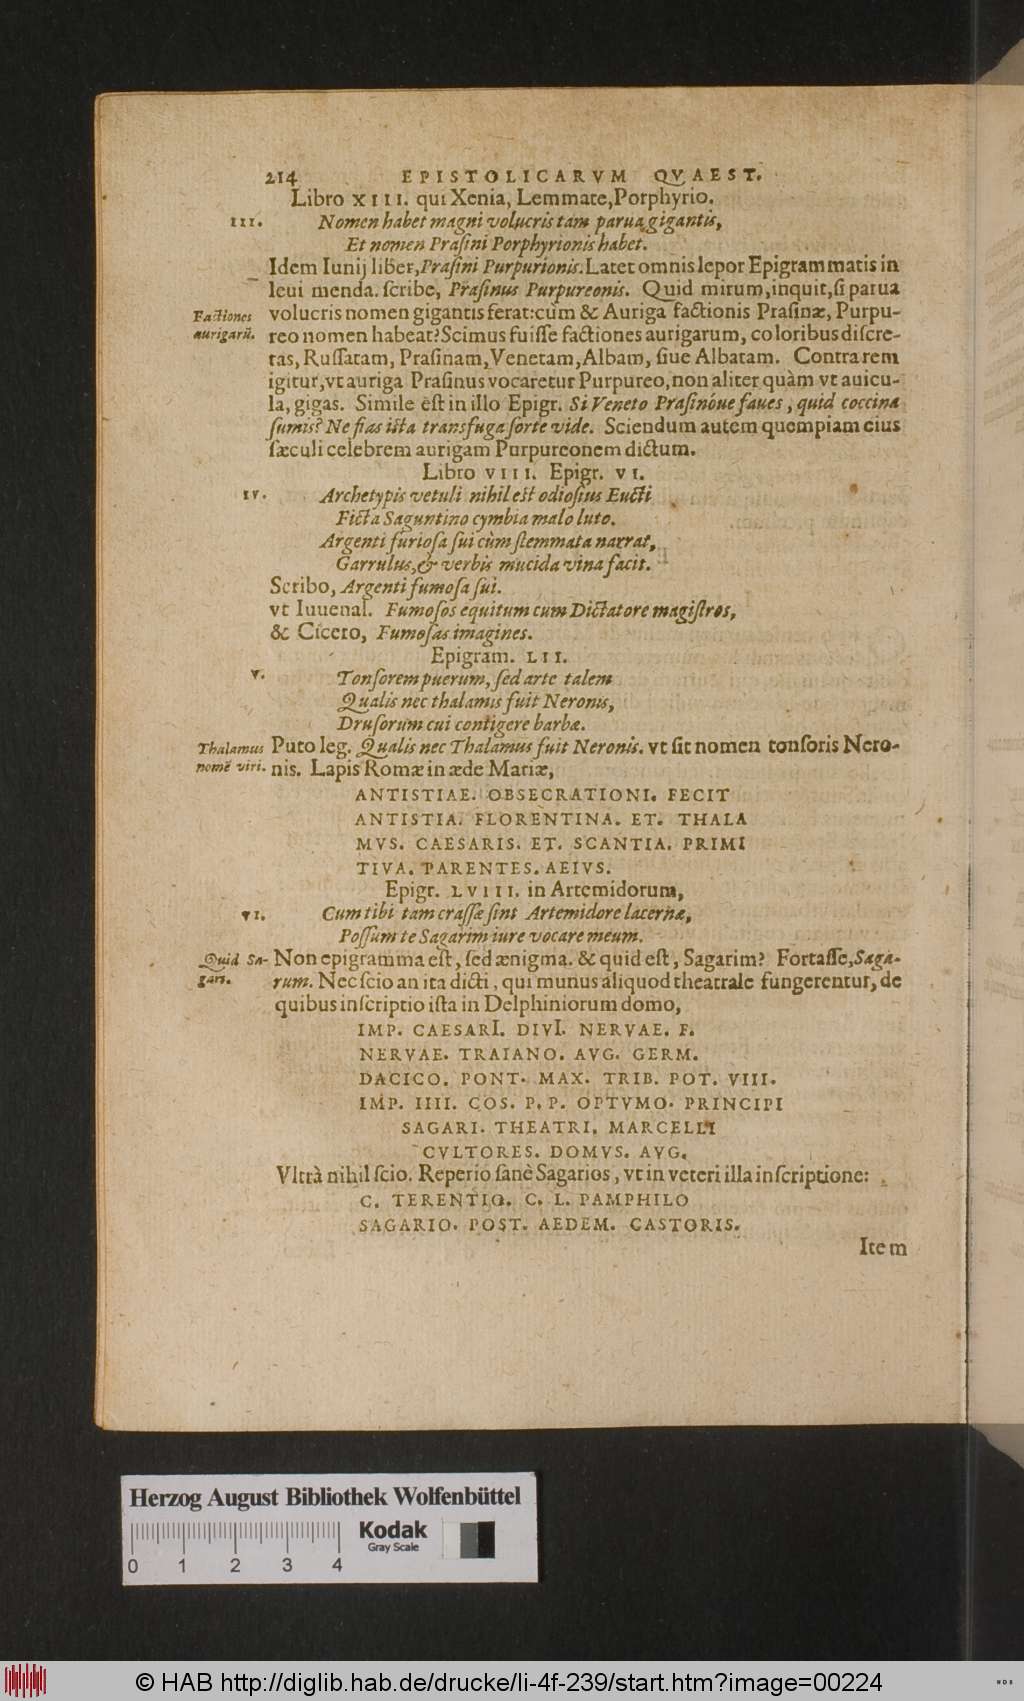 214 EPISTOLICARVM QVAEST.
Libro XIII. qui Xenia, Lemmate, Porphyrio.
III. Nomen habet magni volucris tam parua gigantis,
Et nomen Prasini Porphyrionis habet.
Idem Iunij liber, Prasini Purpurionis. Latet omnis lepor Epigrammatis in
leui menda. scribe, Prasinus Purpureonis. Quid mirum, inquit, si parua
Factiones aurigarũ.
volucris nomen gigantis ferat: cùm & Auriga factionis Prasinæ, Purpu-
reo nomen habeat? Scimus fuisse factiones aurigarum, coloribus discre-
tas, Russatam, Prasinam, Venetam, Albam, siue Albatam. Contra rem
igitur, vt auriga Prasinus vocaretur Purpureo, non aliter quàm vt auicu-
la, gigas. Simile est in illo Epigr. Si Veneto Prasinóue faues, quid coccina
sumis? Ne fias ista transfuga sorte vide. Sciendum autem quempiam eius
sæculi celebrem aurigam Purpureonem dictum.
Libro VIII. Epigr. VI.
IV. Archetypis vetuli nihil est odiosius Eucti
Ficta Saguntino cymbia malo luto.
Argenti furiosa sui cùm stemmata narrat,
Garrulus, & verbis mucida vina facit.
Scribo, Argenti fumosa sui.
vt Iuuenal. Fumosos equitum cum Dictatore magistros,
& Cicero, Fumosas imagines.
Epigram. LII.
V. Tonsorem puerum, sed arte talem
Qualis nec thalamis fuit Neronis,
Drusorum cui contigere barbæ.
Thalamus nomẽ viri.
Puto leg. Qualis nec Thalamus fuit Neronis. vt sit nomen tonsoris Nero-
nis. Lapis Romæ in æde Mariæ,
ANTISTIAE. OBSECRATIONI. FECIT
ANTISTIA. FLORENTINA. ET. THALA
MVS. CAESARIS. ET. SCANTIA. PRIMI
TIVA. PARENTES. AEIVS.
Epigr. LVIII. in Artemidorum,
VI. Cum tibi tam crassæ sint Artemidore lacernæ,
Possum te Sagarim iure vocare meum.
Quid Sagari.
Non epigramma est, sed ænigma. & quid est, Sagarim? Fortasse, Saga-
rum. Nec scio an ita dicti, qui munus aliquod theatrale fungerentur, de
quibus inscriptio ista in Delphiniorum domo,
IMP. CAESARI. DIVI. NERVAE. F.
NERVAE. TRAIANO. AVG. GERM.
DACICO. PONT. MAX. TRIB. POT. VIII.
IMP. IIII. COS. P. P. OPTVMO. PRINCIPI
SAGARI. THEATRI. MARCELLI
CVLTORES. DOMVS. AVG.
Vltrà nihil scio. Reperio sanè Sagarios, vt in veteri illa inscriptione:
C. TERENTIO. C. L. PAMPHILO
SAGARIO. POST. AEDEM. CASTORIS.
Item
Herzog August Bibliothek Wolfenbüttel
Kodak
Gray Scale
0 1 2 3 4
© HAB http://diglib.hab.de/drucke/li-4f-239/start.htm?image=00224